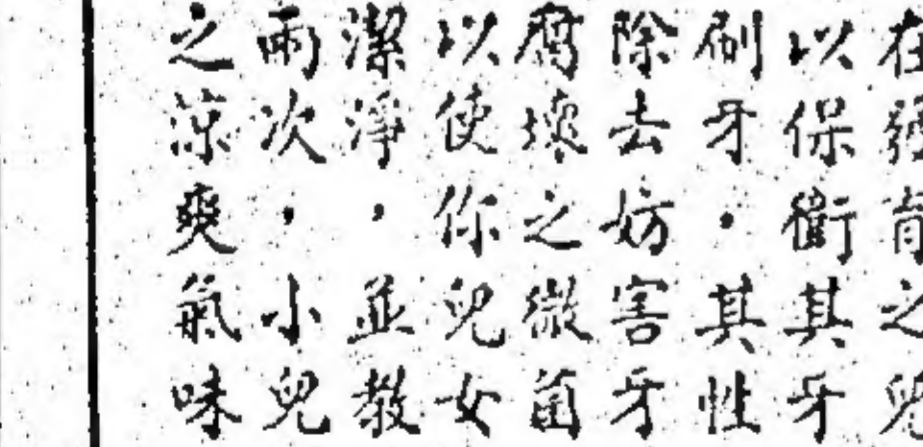 在發育之兒
以保衛其牙
刷牙，其性
除去妨害牙
腐壞之微菌
以使你兒女
潔淨，並教
兩次，小兒
之涼爽氣味